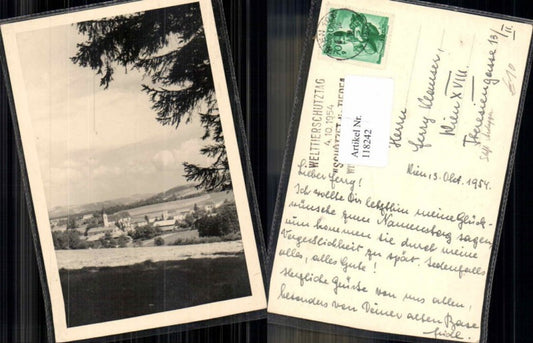 WELTTIERSCHUTZTAG
4.10.1954
Artikel Nr.
118242
Herrn
Ferry
Wien XVIII.
13/II
Wien, 3. Okt. 1954.
Lieber Ferry!
Ich wollte Dir letzthin meine Glück-
wünsche zum Namenstag sagen
nun kommen sie durch meine
Vergesslichkeit zu spät. Jedenfalls
alles, alles Gute!
Herzliche Grüsse von uns allen,
besonders von Deiner alten Base